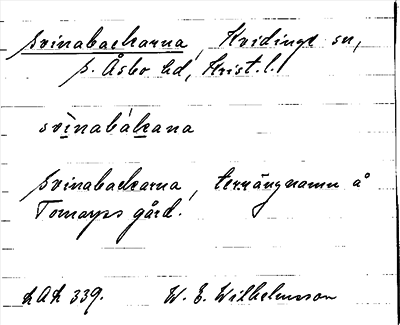 Svinabackarna, Kvidinge sn,
S. Åsbo hd, Krist.l.
svìnabákana
Svinabackarna, terrängnamn å
Tomarps gård.
LAL 339. W. E. Wilhelmsson